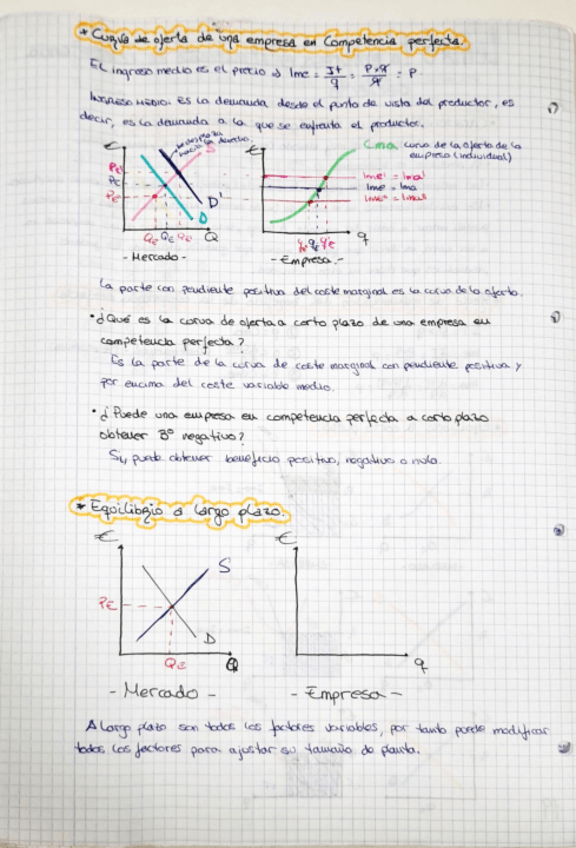 * Curva de oferta de una empresa en Competencia perfecta.
El ingreso medio es el precio → Ime = It/q = P×q/q = P.
INGRESO MEDIO: Es la demanda desde el punto de vista del productor, es
decir, es la demanda a la que se enfrenta el productor.
€
se desplaza
hacia la derecha.
S
D'
D
Q
- Mercado -
€
Cma curva de la oferta de la
empresa (individual)
Ime' = Ima'
Ime = Ima
Ime'' = Ima''
q
- Empresa -
La parte con pendiente positiva del coste marginal es la curva de la oferta.
• ¿Qué es la curva de oferta a corto plazo de una empresa en
competencia perfecta?
Es la parte de la curva de coste marginal con pendiente positiva y
por encima del coste variable medio.
• ¿Puede una empresa en competencia perfecta a corto plazo
obtener Bº negativo?
Sí, puede obtener beneficio positivo, negativo o nulo.
* Equilibrio a largo plazo.
€
S
PE
D
QE
Q
- Mercado -
€
q
- Empresa -
A largo plazo son todos los factores variables, por tanto puede modificar
todos los factores para ajustar su tamaño de planta.